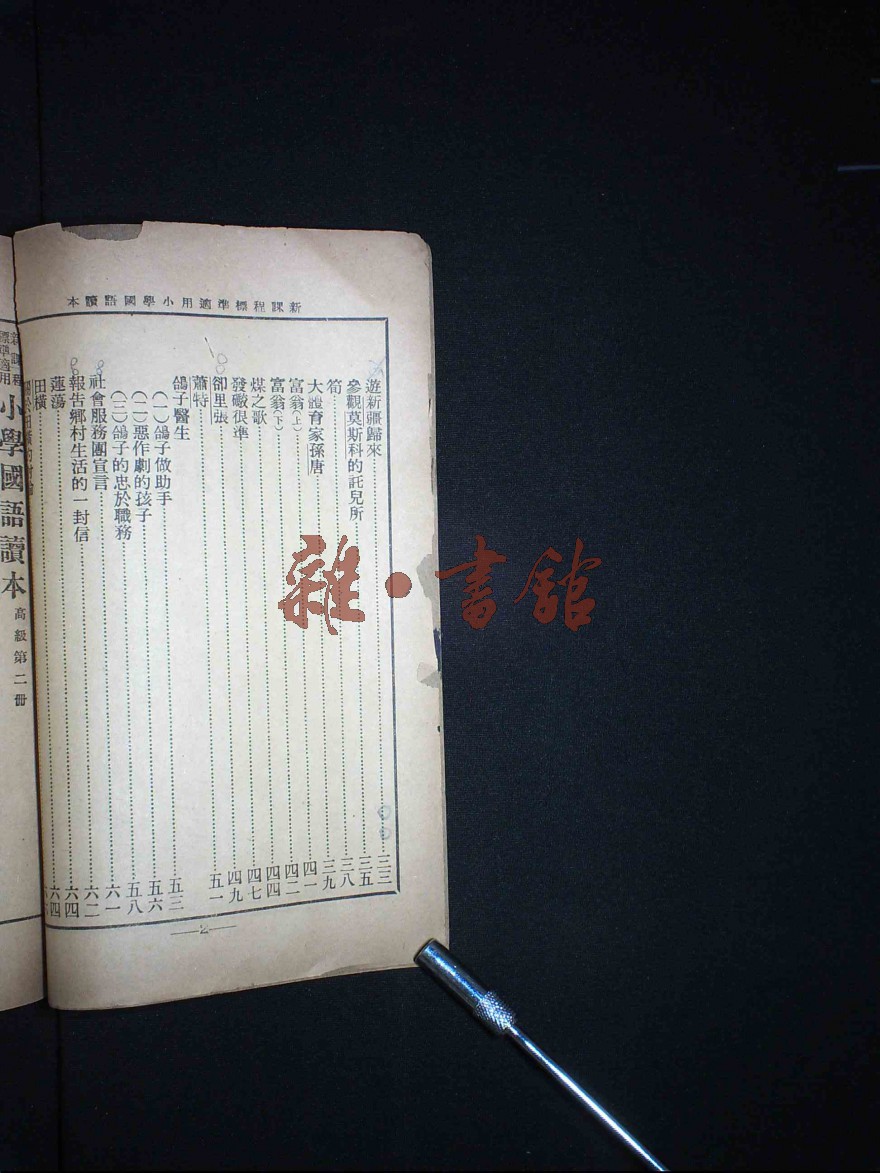 新課程標準適用小學國語讀本
遊新疆歸來……三三
參觀莫斯科的託兒所……三五
筍……三八
大體育家孫唐……三九
富翁(上)……四一
富翁(下)……四二
煤之歌……四四
發礮很準……四七
卻里張……四九
蕭特……五一
鴿子醫生
(一)鴿子做助手……五三
(二)惡作劇的孩子……五六
(三)鴿子的忠於職務……五八
社會服務團宣言……六一
報告鄉村生活的一封信……六二
蓮蕩……六四
田橫……六四
2
新課程標準適用
小學國語讀本
高級第二冊
雜·書館